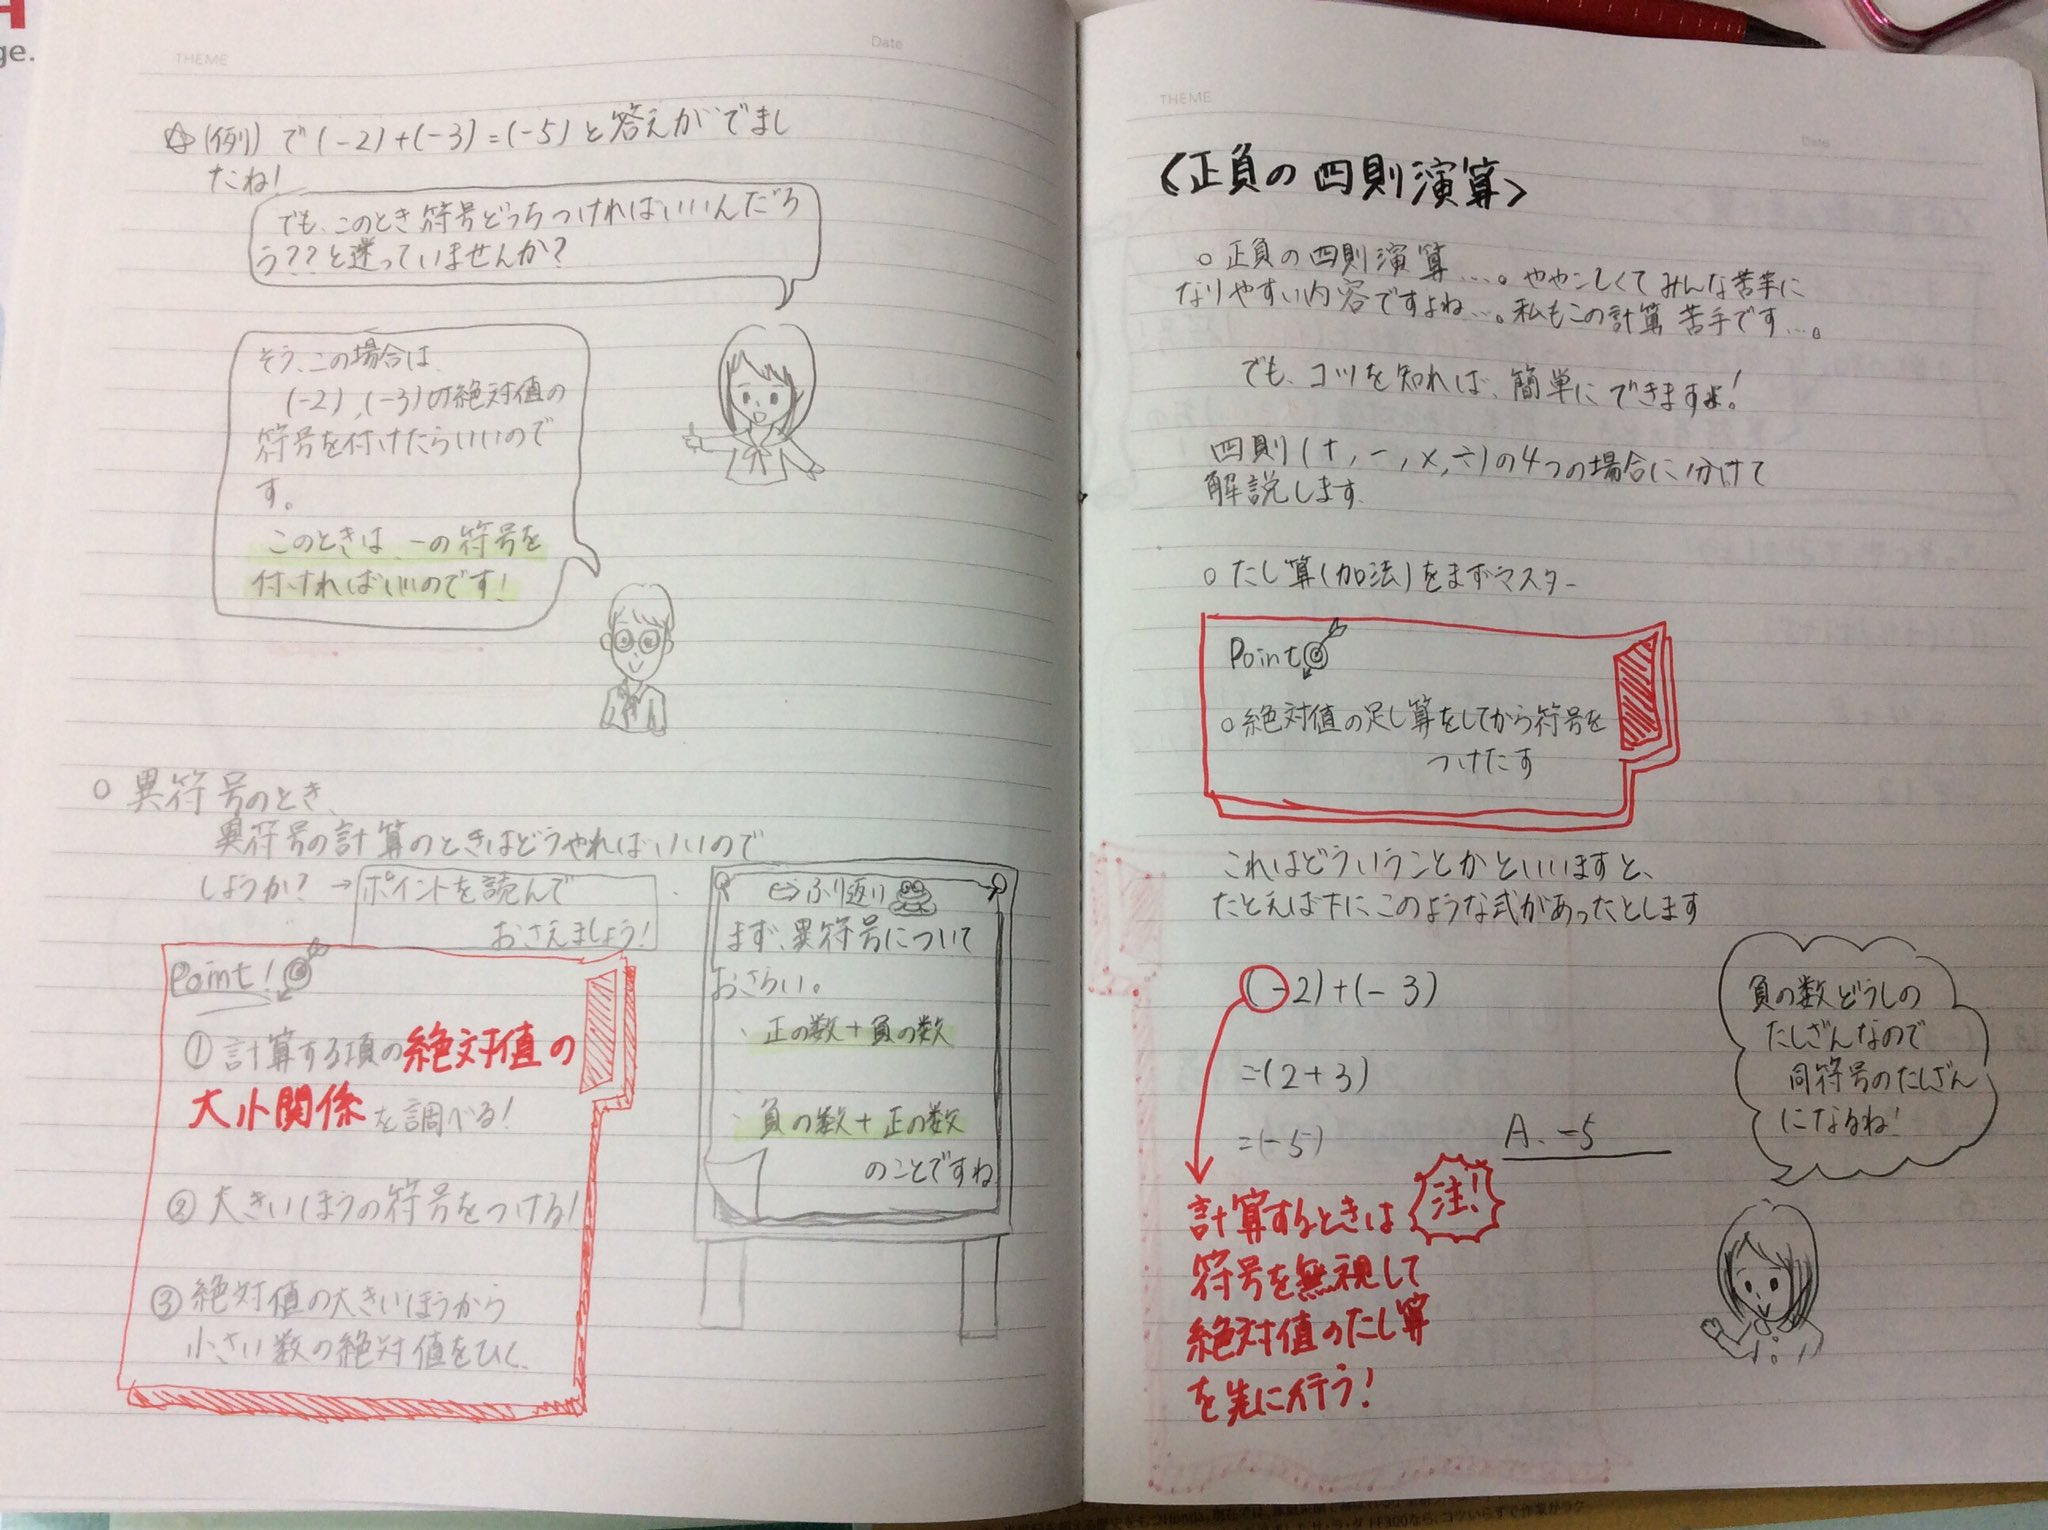 ge.
THEME
Date
☆(例)で(-2)+(-3)=(-5)と答えがでまし
たね!
でも、このとき符号どっちつければいいんだろ
う??と迷っていませんか?
そう、この場合は、
(-2),(-3)の絶対値の
符号を付けたらいいので
す。
このときは、-の符号を
付ければいいのです!
○異符号のとき、
異符号の計算のときはどうやればいいので
しょうか?→ポイントを読んで
おさえましょう!
Point!
①計算する項の絶対値の
大小関係を調べる!
②大きいほうの符号をつける!
③絶対値の大きいほうから
小さい数の絶対値をひく、
ふり返り
まず、異符号について
おさらい。
・正の数+負の数
・負の数+正の数
のことですね
THEME
Date
<正負の四則演算>
○正負の四則演算…。ややこしくてみんな苦手に
なりやすい内容ですよね…。私もこの計算苦手です…。
でも、コツを知れば、簡単にできますよ!
四則(+,-,×,÷)の4つの場合に分けて
解説します。
○たし算(加法)をまずマスター
Point
○絶対値の足し算をしてから符号を
つけたす
これはどういうことかといいますと、
たとえば下にこのような式があったとします
(-2)+(-3)
=-(2+3)
=(-5)
A. -5
負の数どうしの
たしざんなので
同符号のたしざん
になるね!
注!
計算するときは
符号を無視して
絶対値のたし算
を先に行う!